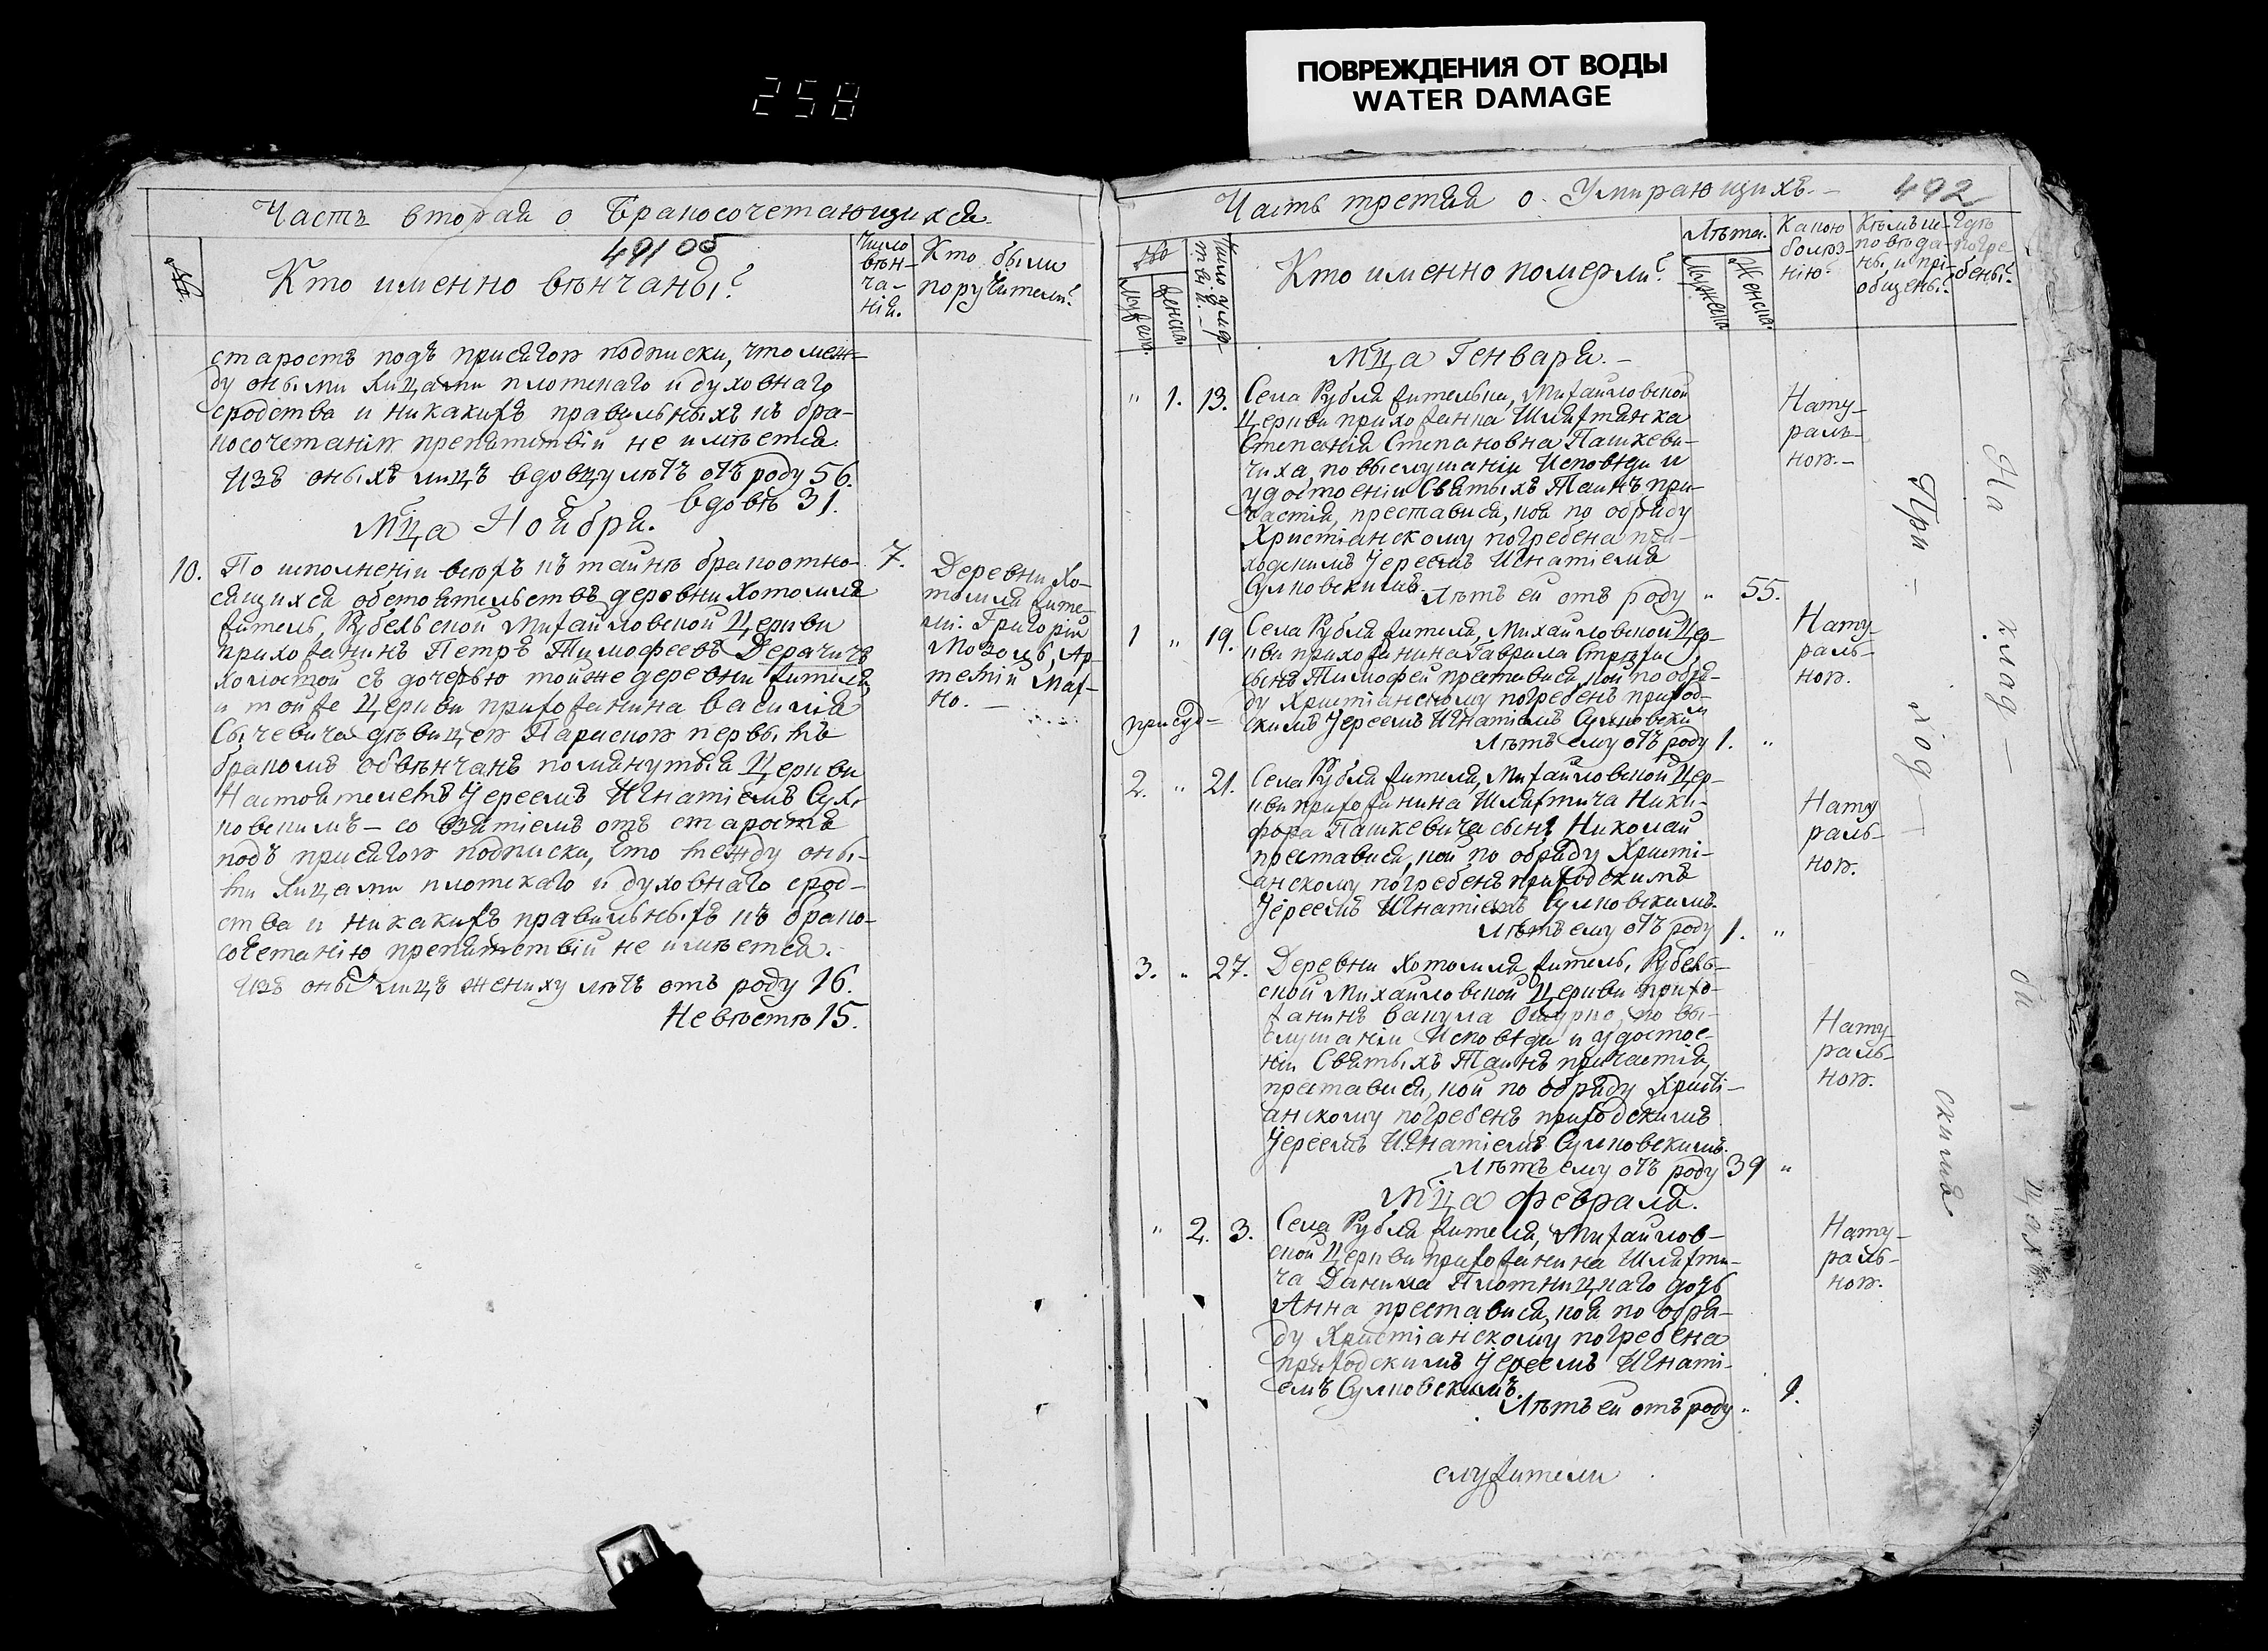 258
ПОВРЕЖДЕНИЯ ОТ ВОДЫ
WATER DAMAGE
Часть вторая о Бракосочетающихся.
491 об
№.
Кто именно вѣнчаны?
Число
вѣн-
ча-
нія.
Кто были
поручители?
старостъ подъ присягою подписки, что меж-
ду оными лицами плотскаго и духовнаго
сродства и никакихъ правильныхъ къ бра-
косочетанію препятствій не имѣется.
Изъ оныхъ лицъ вдовцу лѣтъ отъ роду 56.
вдовѣ 31.
Мца Ноября.
10.
По исполненіи всѣхъ къ тайнѣ бракоотно-
сящихся обстоятельствъ деревни Хотомля
житель, Рубельской Михайловской Церкви
прихожанинъ Петръ Тимофеевъ Дерачичъ
холостой съ дочерью тойже деревни жителя,
и тойже Церкви прихожанина Василія
Сычевича дѣвицею Параскою первымъ
бракомъ обвѣнчанъ помянутыя Церкви
Настоятелемъ Іереемъ Игнатіемъ Сул-
ковскимъ – со взятіемъ отъ старостъ
подъ присягою подписки, что между оны-
ми лицами плотскаго и духовнаго срод-
ства и никакихъ правильныхъ къ брако-
сочетанію препятствій не имѣется.
Изъ оныхъ лицъ жениху лѣтъ отъ роду 16.
Невѣстѣ 15.
7.
Деревни Хо-
томля жите-
ли: Григорій
Мозоль, Ар-
темій Мах-
но. –
Часть третяя о Умирающихъ. –
492
№
Мужеска.
Женска.
Число умер-
Кто именно померли?
Лѣта.
Мужеска
Женска.
Какою
болѣз-
нію.
Кѣмъ ис-
повѣда-
ны, и прі-
общены?
Гдѣ
погре-
бены?
Мца Генваря. –
" 1. 13.
Села Рубля жителька, Михайловской
Церкви прихожанка Шляхтянка
Степанія Степановна Пашкеви-
чиха, по выслушаніи Исповѣди и
удостоеніи Святыхъ Таинъ при-
частія, преставися, коя по обряду
Христіанскому погребена при-
ходскимъ Іереемъ Игнатіемъ
Сулковскимъ. Лѣтъ ей отъ роду " 55.
Нату-
раль-
ною. –
1 " 19.
Села Рубля жителя, Михайловской Цер-
кви прихожанина Гаврила
сынъ Тимофей преставися, кой по обря-
ду Христіанскому погребенъ приход-
скимъ Іереемъ Игнатіемъ Сулковски
мъ
Лѣтъ ему отъ роду 1. "
Нату-
раль-
ною.
2. " 21.
Села Рубля жителя, Михайловской Цер-
кви прихожанина Шляхтича Ники-
фора Пашкевича сынъ Николай
преставися, кой по обряду Христі-
анскому погребенъ приходскимъ
Іереемъ Игнатіемъ Сулковскимъ.
Лѣтъ ему отъ роду 1. "
Нату
раль-
ною.
3. " 27.
Деревни Хотомля житель, Рубель-
ской Михайловской Церкви прихо-
жанинъ Вакула по вы-
слушаніи Исповѣди и удостое-
ніи Святыхъ Таинъ причастія,
преставися, кой по обряду Христі-
анскому погребенъ приходскимъ
Іереемъ Игнатіемъ Сулковскимъ.
Лѣтъ ему отъ роду 39 "
Нату-
раль-
ною.
Мца Февраля.
" 2. 3.
Села Рубля жителя, Михайлов-
ской Церкви прихожанина Шляхти-
ча Данила Плотницкаго дочь
Анна преставися, коя по обря-
ду Христіанскому погребена
приходскимъ Іереемъ Игнаті-
емъ Сулковскимъ.
Лѣтъ ей отъ роду " 1.
Нату-
раль-
ною.
При –
ход –
скимъ
На
клад –
би
щѣхъ
служители